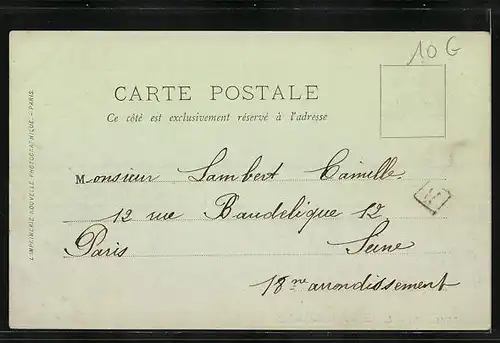 10 G
CARTE POSTALE
Ce côté est exclusivement réservé à l'adresse
L'IMPRIMERIE NOUVELLE PHOTOGRAPHIQUE. - PARIS.
Monsieur Lambert Camille.
12 rue Baudelique 12
Paris Seine
18me arrondissement